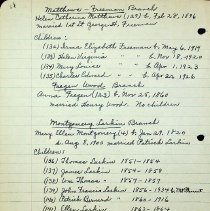 Matthews - Freeman Branch
Helen Catherine Matthews (127) b. Feb 28, 1896
married 1st Lt George H. Freeman
Children:
(134) Irma Elizabeth Freeman b May 6, 1919
(135) Helen Virginia " b. Nov 18, 1920
(134) Mary Louise " " b. Apr 1, 1923
(135) Charles Edward " " b. Apr 22, 1926
Wood Branch
Anna (123) b. Nov 25, 1860
married Henry Wood No children
Montgomery Larkin Branch
Mary Ellen Montgomery (4) b. Jan 29, 1820
d Aug 8, 1903 married Patrick Larkin
Children:
(136) Thomas Larkin 1851-1854
(137) James Larkin 1854-1858
(138) Wm Thomas " 1857-
(139) John Francis Larkin 1856-1934
(140) Patrick " 1860-1916
(141) Ellen Larkin 1862-